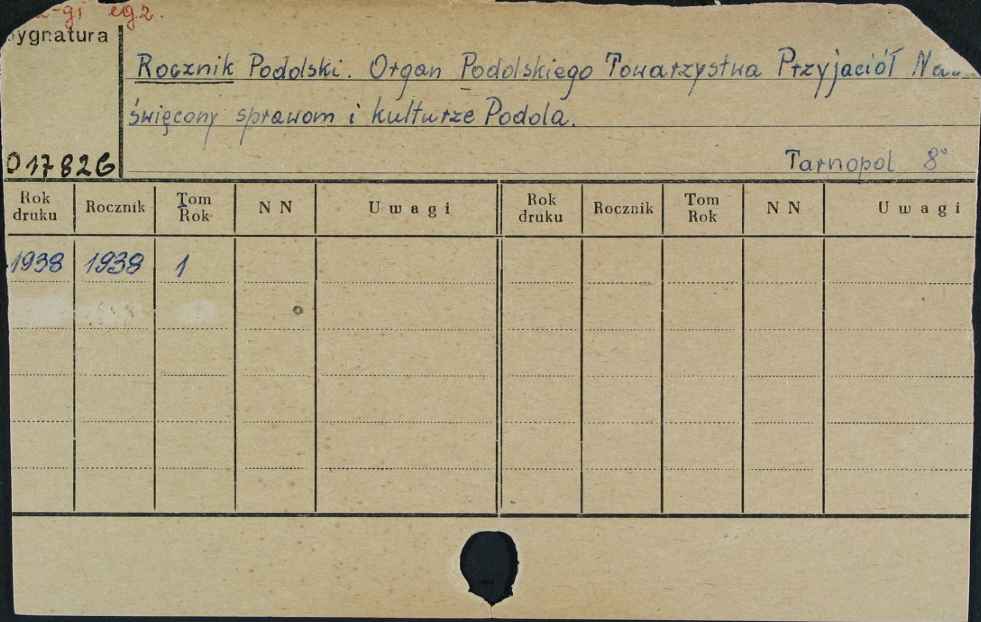 -gi egz.
ygnatura
Rocznik Podolski. Organ Podolskiego Towarzystwa Przyjaciół
święcony sprawom i kulturze Podola.
017826
Tarnopol 8°
Rok druku Rocznik Tom Rok NN Uwagi Rok druku Rocznik Tom Rok NN Uwagi
1938 1938 1